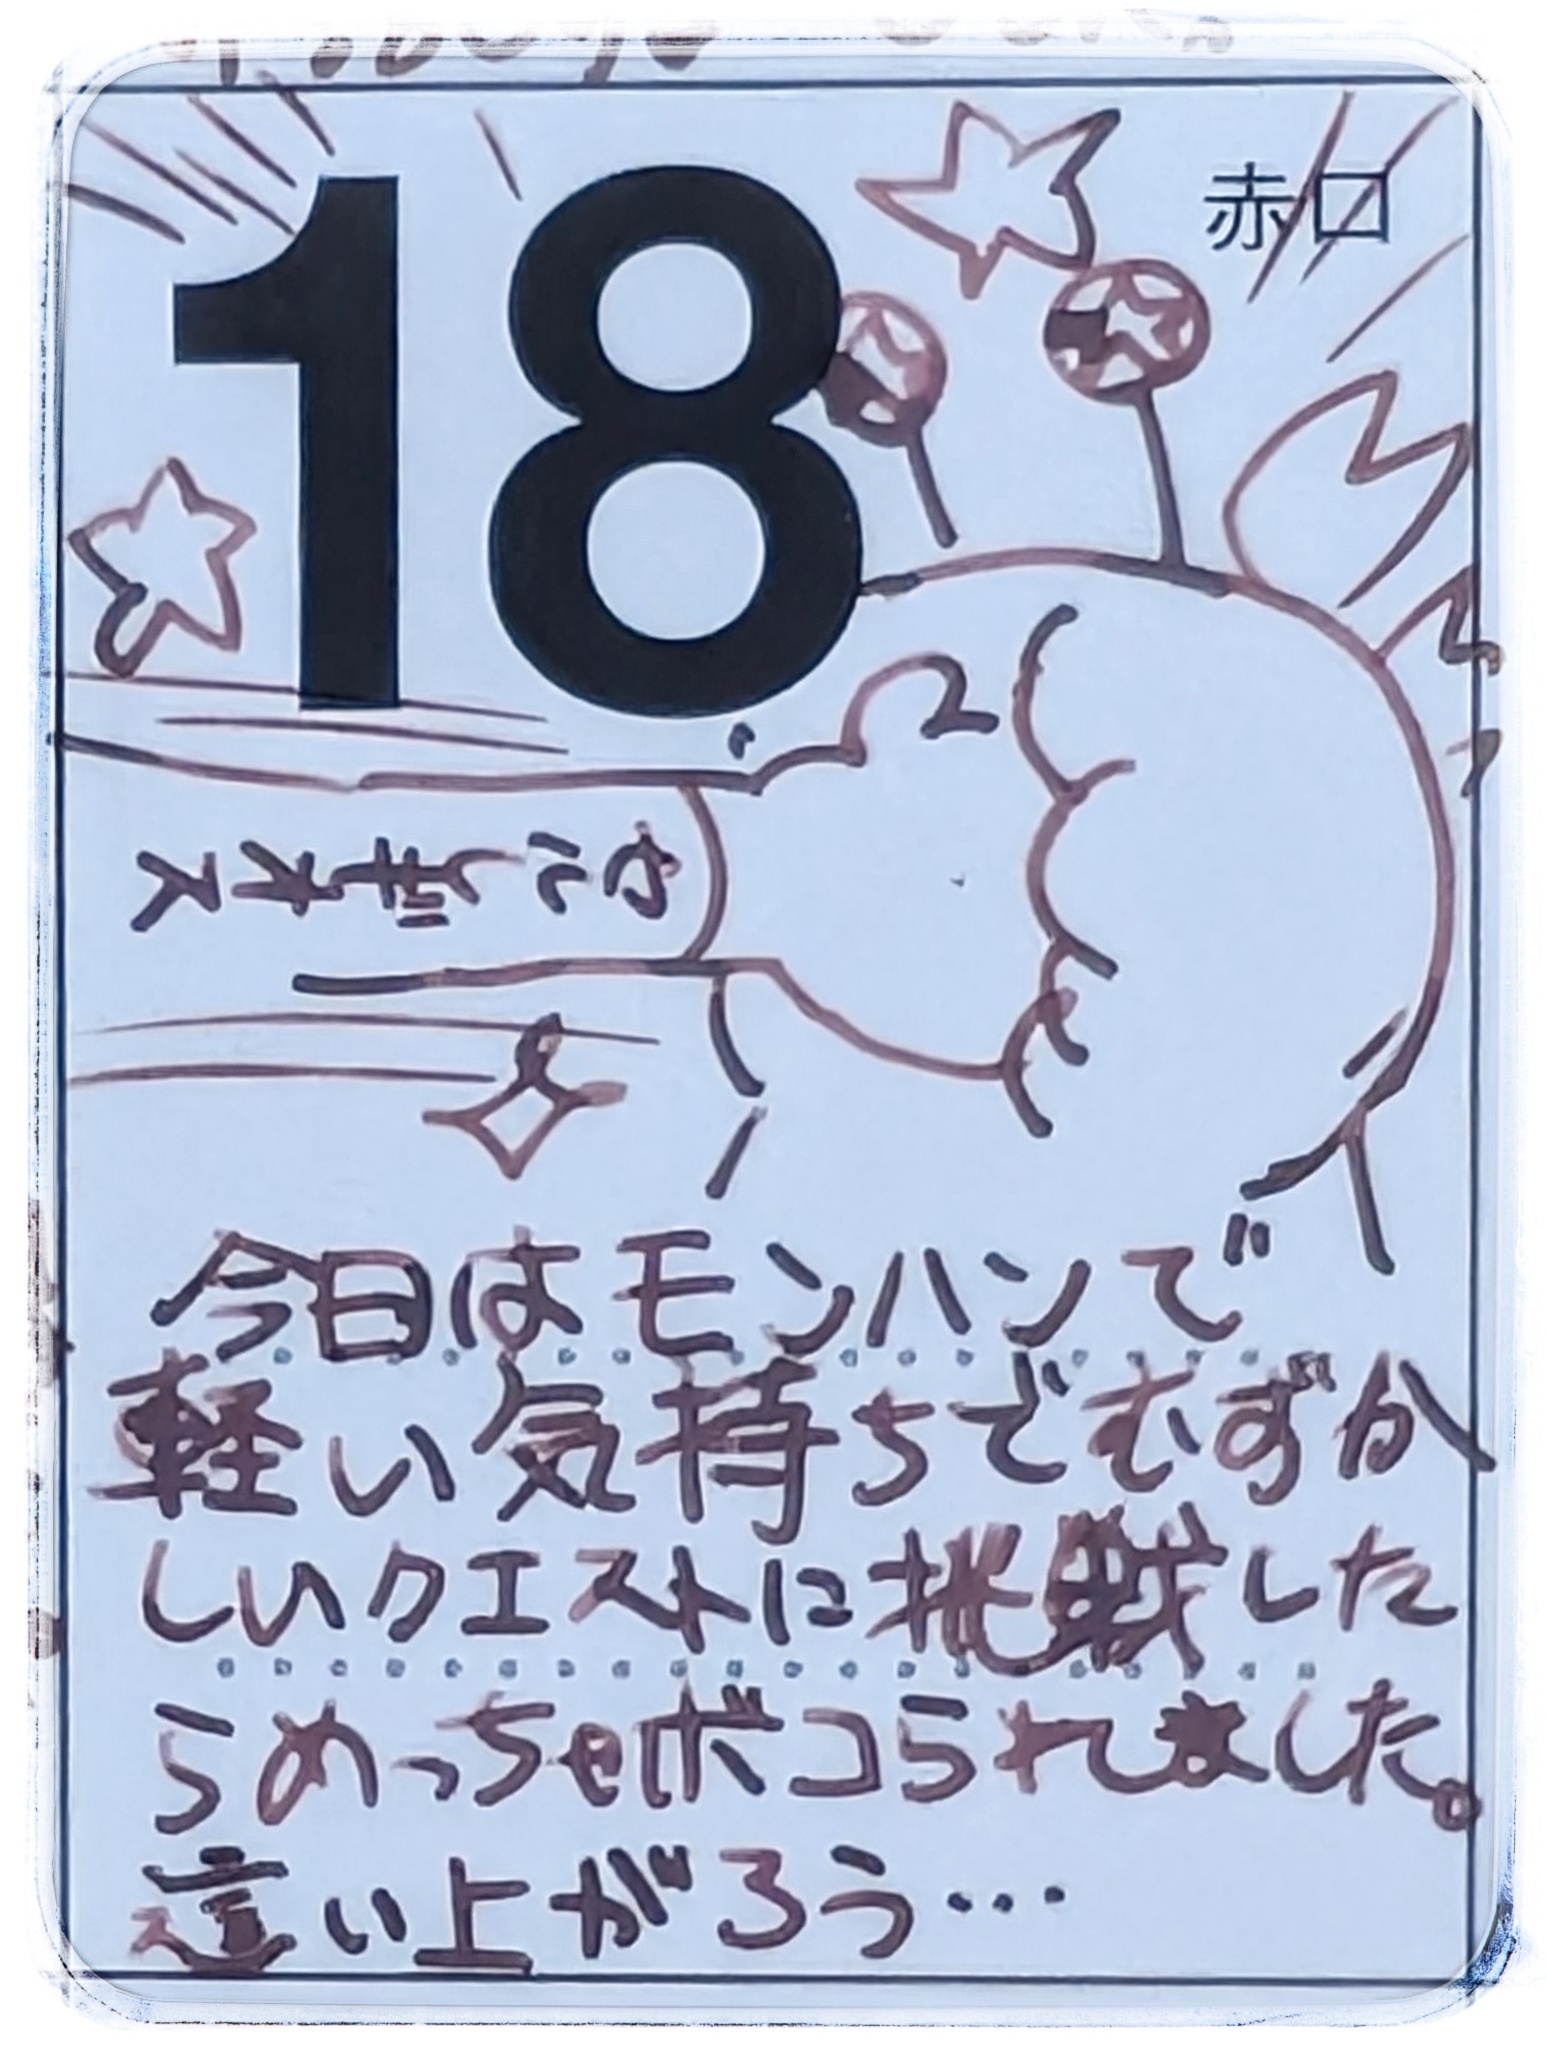 18
赤口
セルレギオス
今日はモンハンで
軽い気持ちでむずか
しいクエストに挑戦した
らめっちゃボコられました。
這い上がろう…